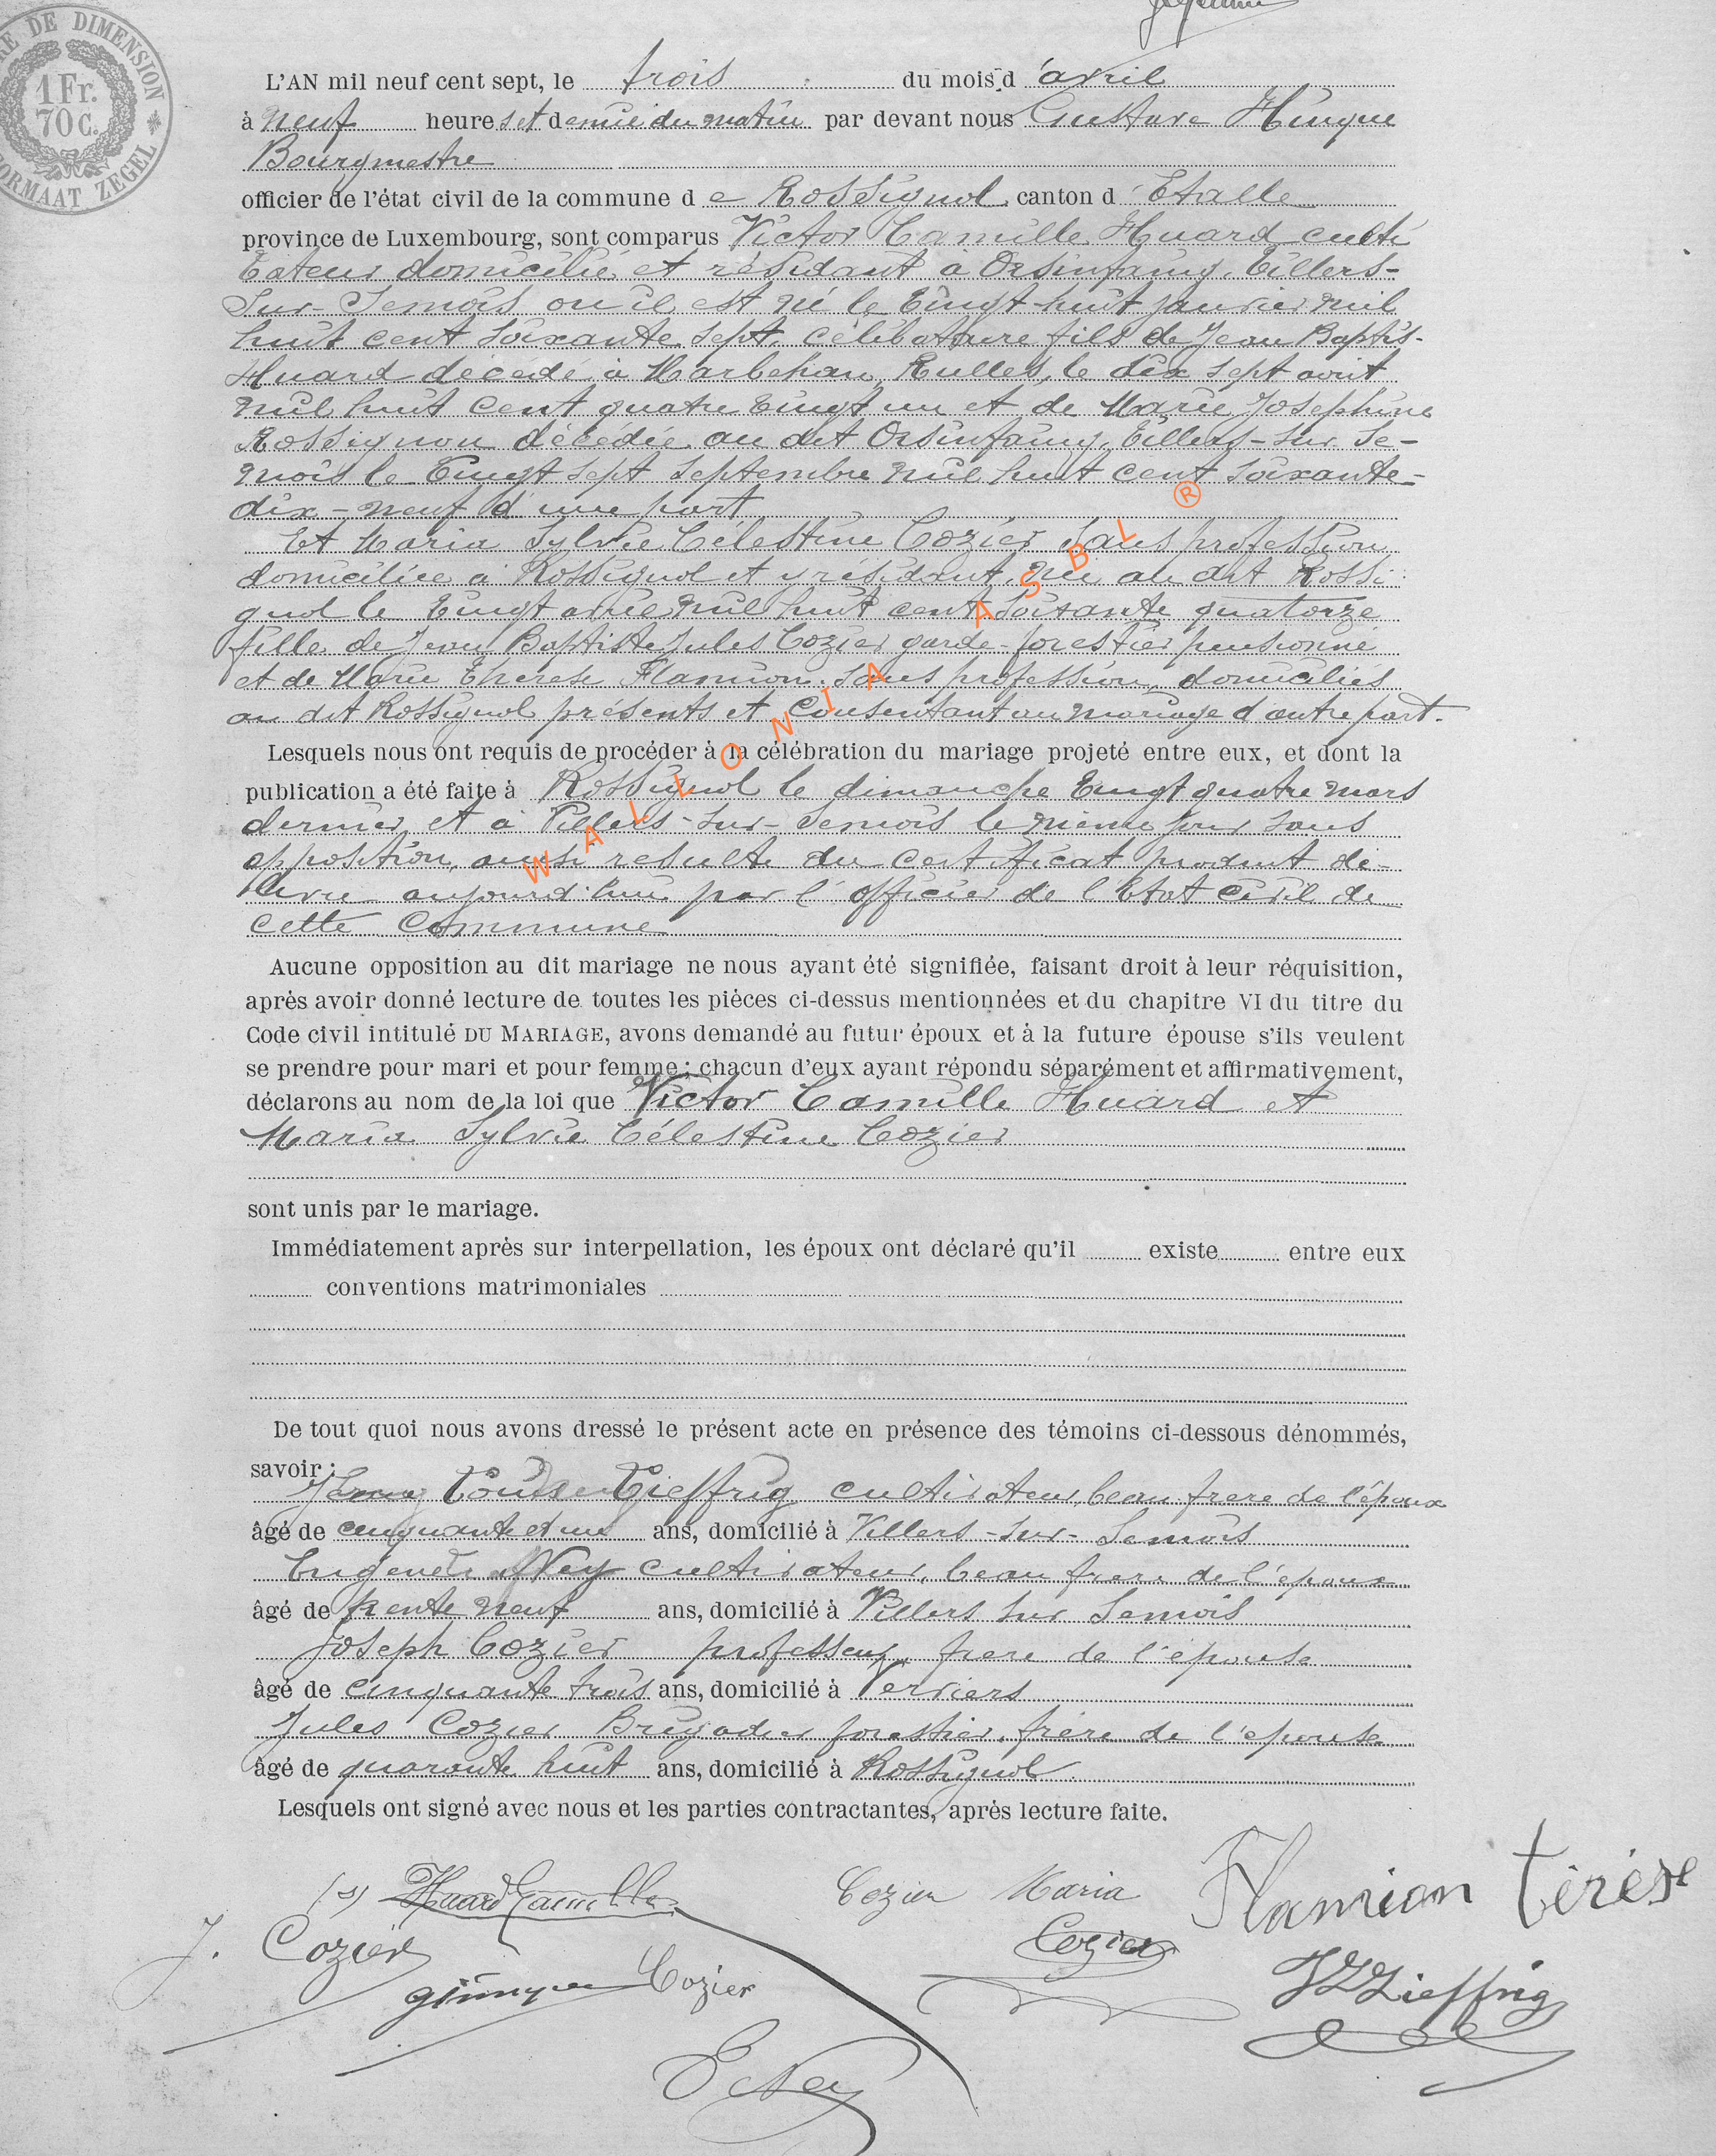 RE DE DIMENSION
1 Fr.
70 C.
FORMAAT ZEGEL
L'AN mil neuf cent sept, le trois du mois d'avril
à neuf heures et demie du matin par devant nous Gustave Hinque
Bourgmestre
officier de l'état civil de la commune de Rossignol canton d'Etalle
province de Luxembourg, sont comparus Victor Camille Huard culti
vateur domicilié et résidant à Orsinfaing, Villers-
sur-Semois ou il est né le vingt-huit janvier mil
huit cent soixante sept, célibataire fils de Jean Baptis-
Huard décédé à Marbehan, Rulles, le dix sept avril
mil huit cent quatre vingt un et de Marie Josephine
Rossignon décédée au dit Orsinfaing, Villers-sur Se-
mois le vingt sept septembre mil huit cent soixante-
dix-neuf d'une part
Et Maria Sylvie Célestine Cozier sans profession
domiciliée à Rossignol et y résidant, née au dit Rossi
gnol le vingt avril mil huit cent soixante quatorze
fille de Jean Baptiste Jules Cozier garde-forestier pensionné
et de Marie Thérese Flamion sans profession, domiciliés
au dit Rossignol présents et consentant au mariage d'autre part.
Lesquels nous ont requis de procéder à la célébration du mariage projeté entre eux, et dont la
publication a été faite à Rossignol le dimanche vingt quatre mars
dernier et à Villers-sur-Semois le même jour sans
opposition, ainsi resulte du certificat produit dé-
livré aujourd'hui par l'officier de l'état civil de
cette commune
WALLONIA ASBL ®
Aucune opposition au dit mariage ne nous ayant été signifiée, faisant droit à leur réquisition,
après avoir donné lecture de toutes les pièces ci-dessus mentionnées et du chapitre VI du titre du
Code civil intitulé DU MARIAGE, avons demandé au futur époux et à la future épouse s'ils veulent
se prendre pour mari et pour femme ; chacun d'eux ayant répondu séparément et affirmativement,
déclarons au nom de la loi que Victor Camille Huard et
Maria Sylvie Célestine Cozier
sont unis par le mariage.
Immédiatement après sur interpellation, les époux ont déclaré qu'il existe entre eux
conventions matrimoniales
De tout quoi nous avons dressé le présent acte en présence des témoins ci-dessous dénommés,
savoir :
Zieffrig cultivateur, beau frere de l'époux
âgé de cinquante et un ans, domicilié à Villers-sur-Semois
Ney cultivateur, beau frere de l'époux
âgé de trente neuf ans, domicilié à Villers sur Semois
Joseph Cozier professeur, frere de l'épouse
âgé de cinquante trois ans, domicilié à Verviers
Jules Cozier Brigadier forestier, frère de l'epouse
âgé de quarante huit ans, domicilié à Rossignol
Lesquels ont signé avec nous et les parties contractantes, après lecture faite.
(s) Huard Camille Cozier Maria Flamion térése
J. Cozier Cozier
ghinque Cozier JL Zieffrig
E Ney